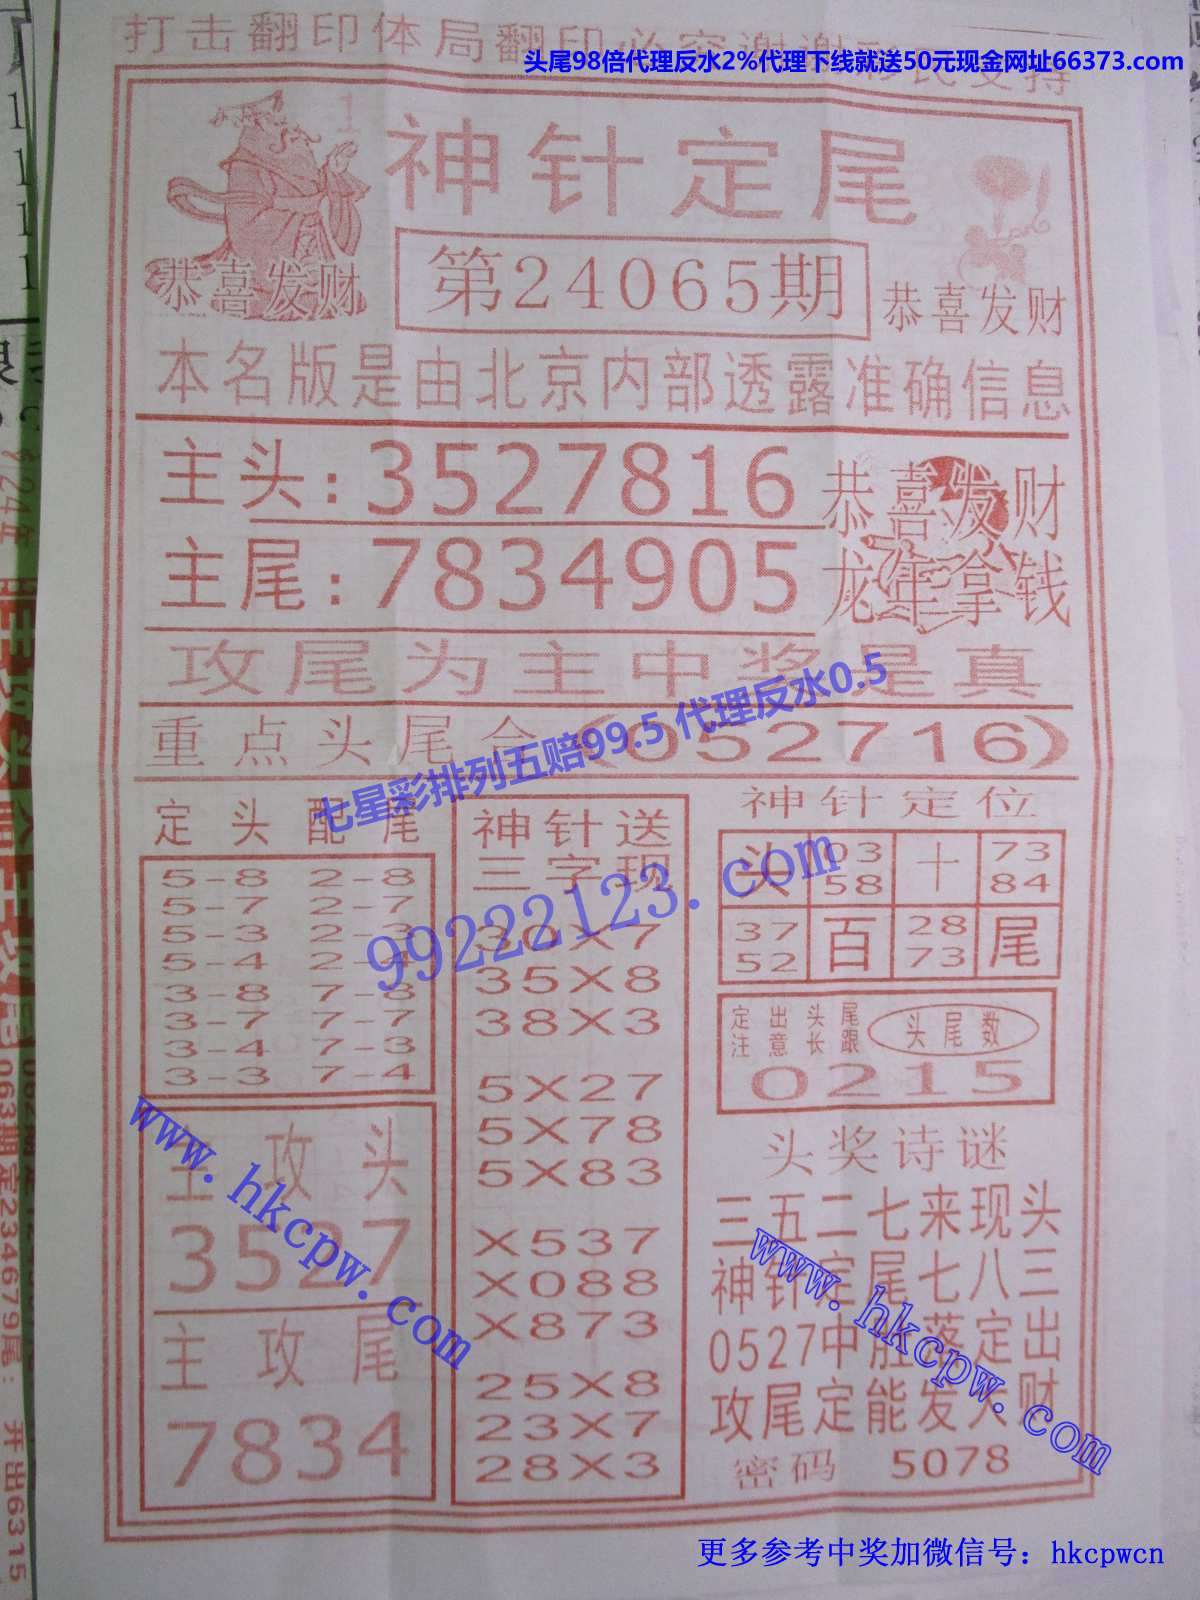 打击翻印体局翻印必究谢谢彩民支持
头尾98倍代理反水2%代理下线就送50元现金网址66373.com
神针定尾
恭喜发财
第24065期
恭喜发财
本名版是由北京内部透露准确信息
主头:3527816
恭喜发财
主尾:7834905
龙年拿钱
攻尾为主中奖是真
重点头尾合(052716)
七星彩排列五赔99.5 代理反水0.5
定头配尾
5-8 2-8
5-7 2-7
5-3 2-3
5-4 2-4
3-8 7-8
3-7 7-7
3-4 7-3
3-3 7-4
主攻头
3527
主攻尾
7834
神针送
三字现
30X7
35X8
38X3
5X27
5X78
5X83
X537
X088
X873
25X8
23X7
28X3
神针定位
头 03 58 十 73 84
37 52 百 28 73 尾
定出头尾
注意长跟
头尾数
0215
头奖诗谜
三五二七来现头
神针定尾七八三
0527中胜落定出
攻尾定能发大财
密码 5078
99222123.com
www.hkcpw.com
www.hkcpw.com
更多参考中奖加微信号：hkcpwcn
063期定234679尾：开出6315